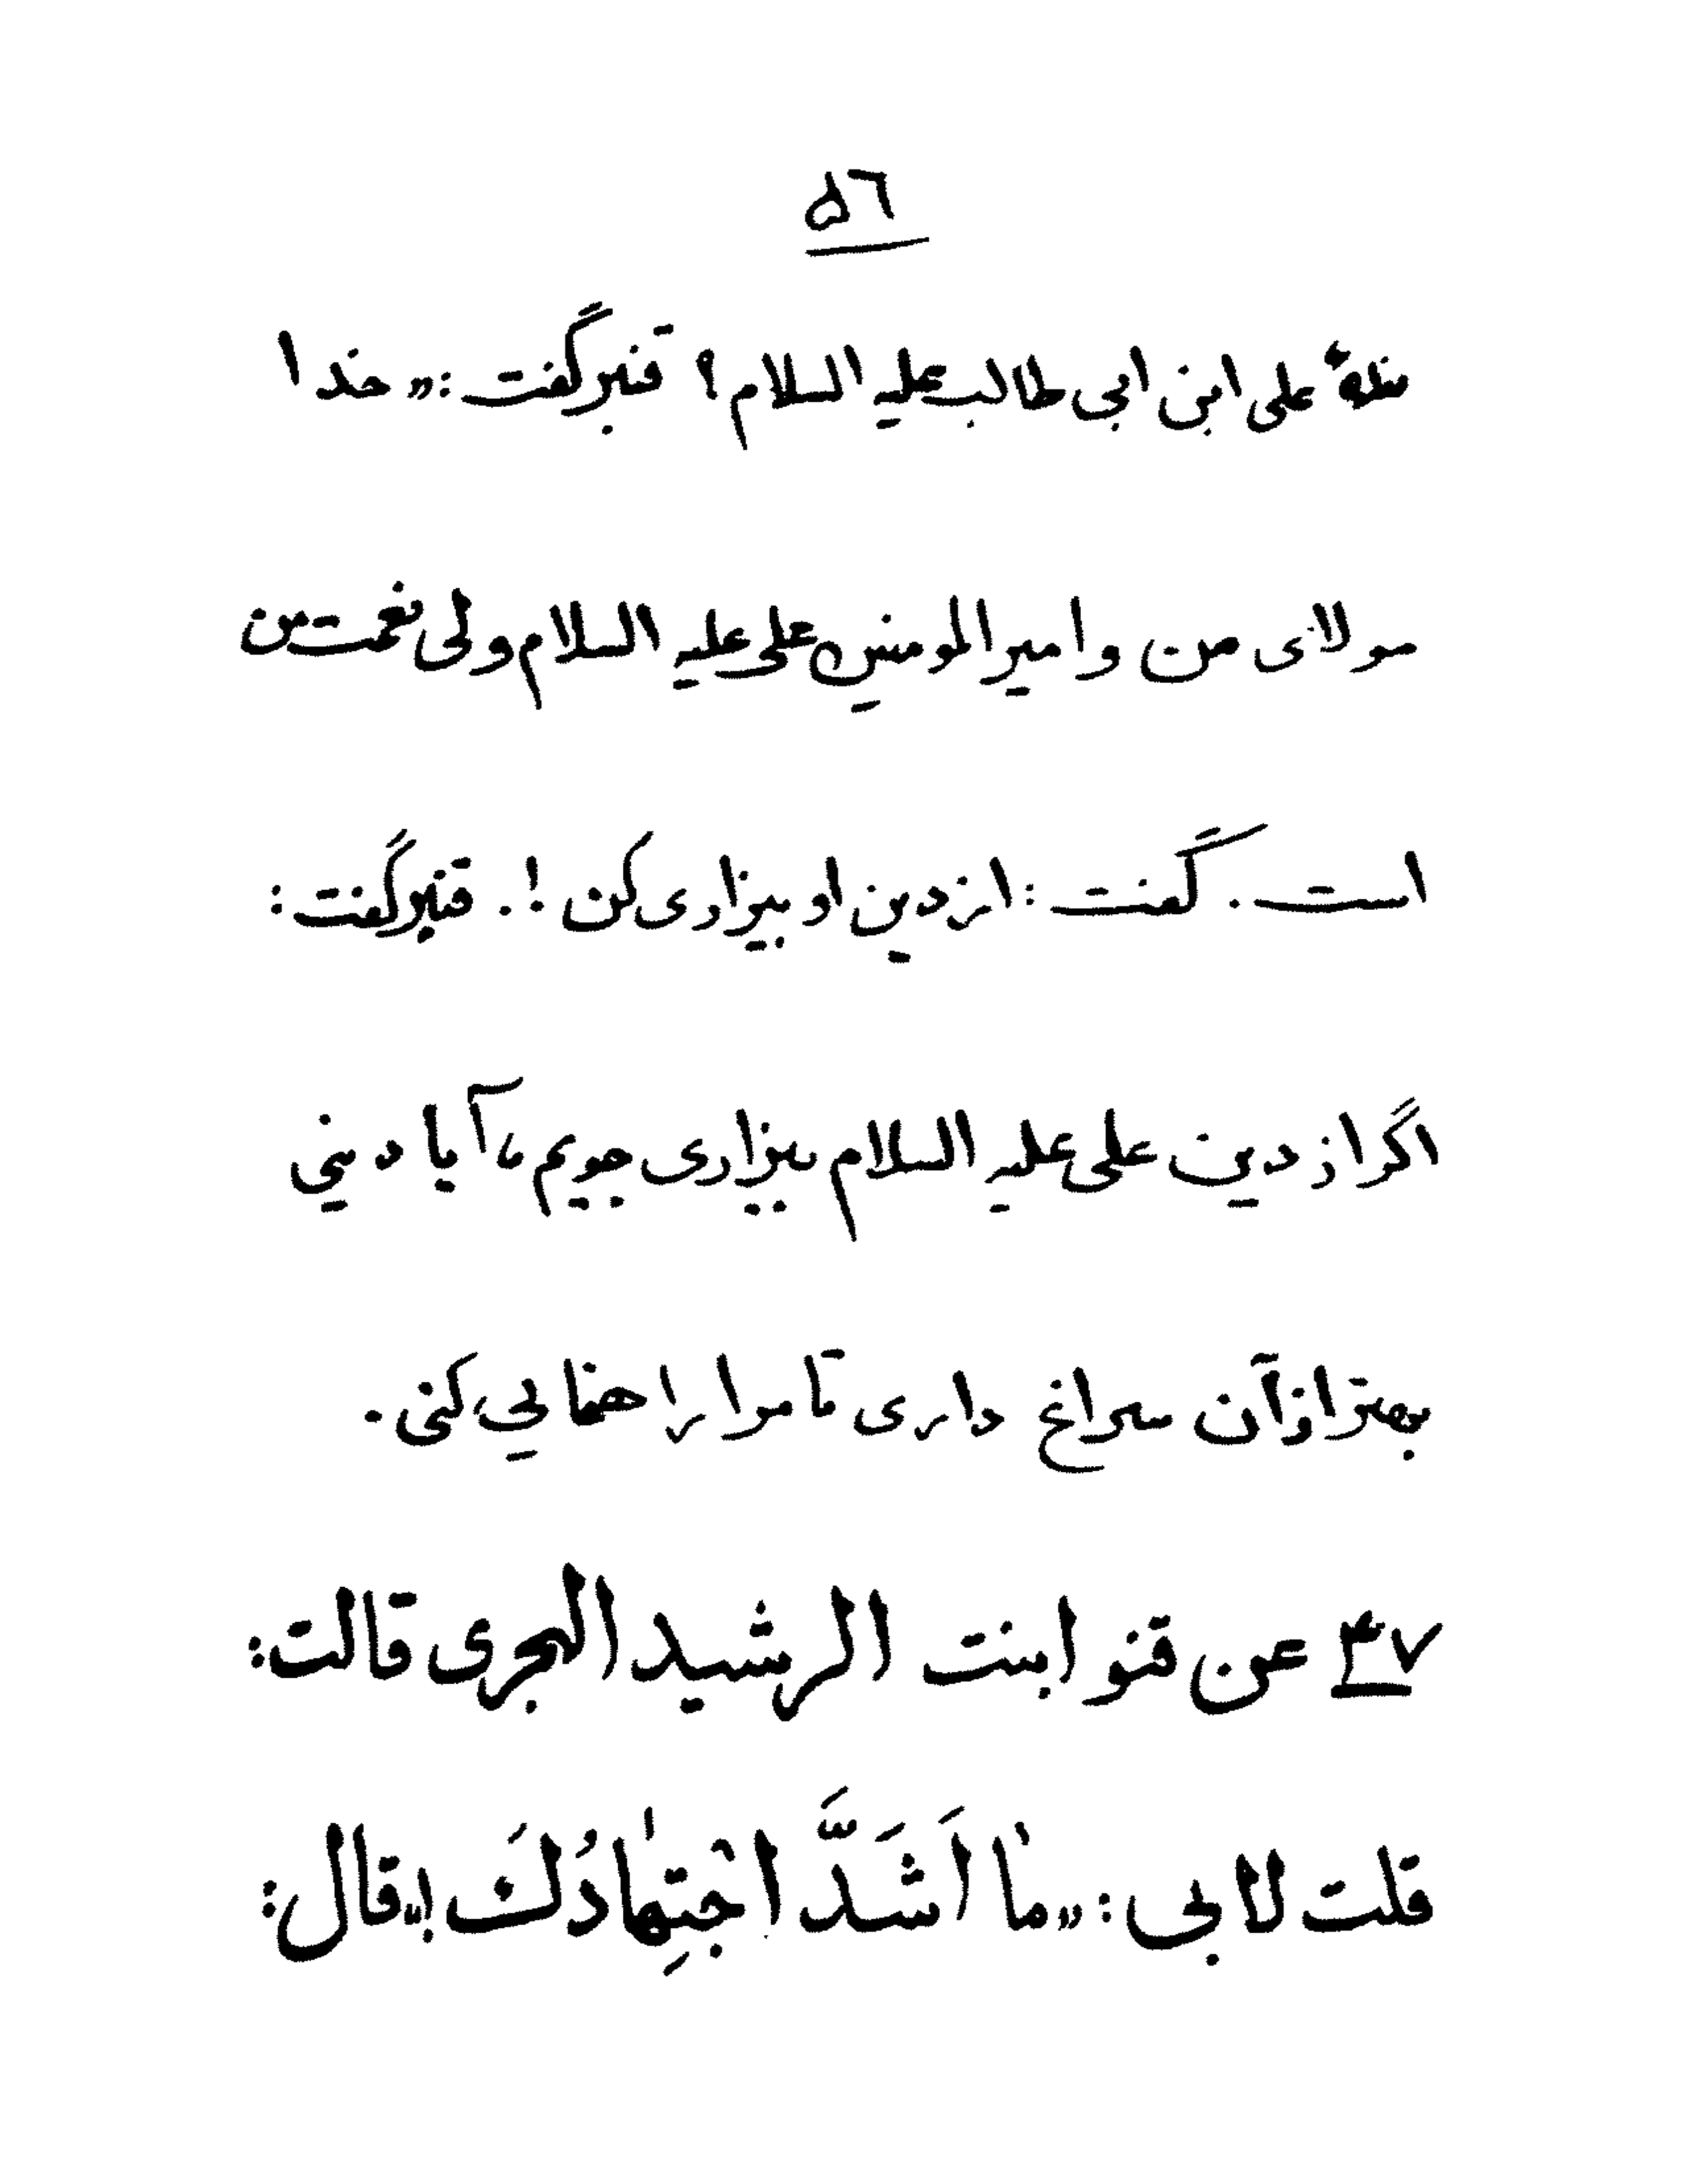 ۵٦
بندهٔ علی ابن ابی طالب علیه السلام؟ قنبر گفت:„ خدا
مولای من و امیر المومنین علی علیه السلام ولی نعمت من
است. گفت: از دین او بیزاری کن!. قنبر گفت:
اگر از دین علی علیه السلام بیزاری جویم، آیا دینی
بهتر از آن سراغ داری تا مرا راهنمایی کنی.
۴۷ عن قنو ابنت الرشید الهجری قالت:
قلت لابی:„ مٰا اَشَدَّ اجْتِهٰادُكَ!„ قال: